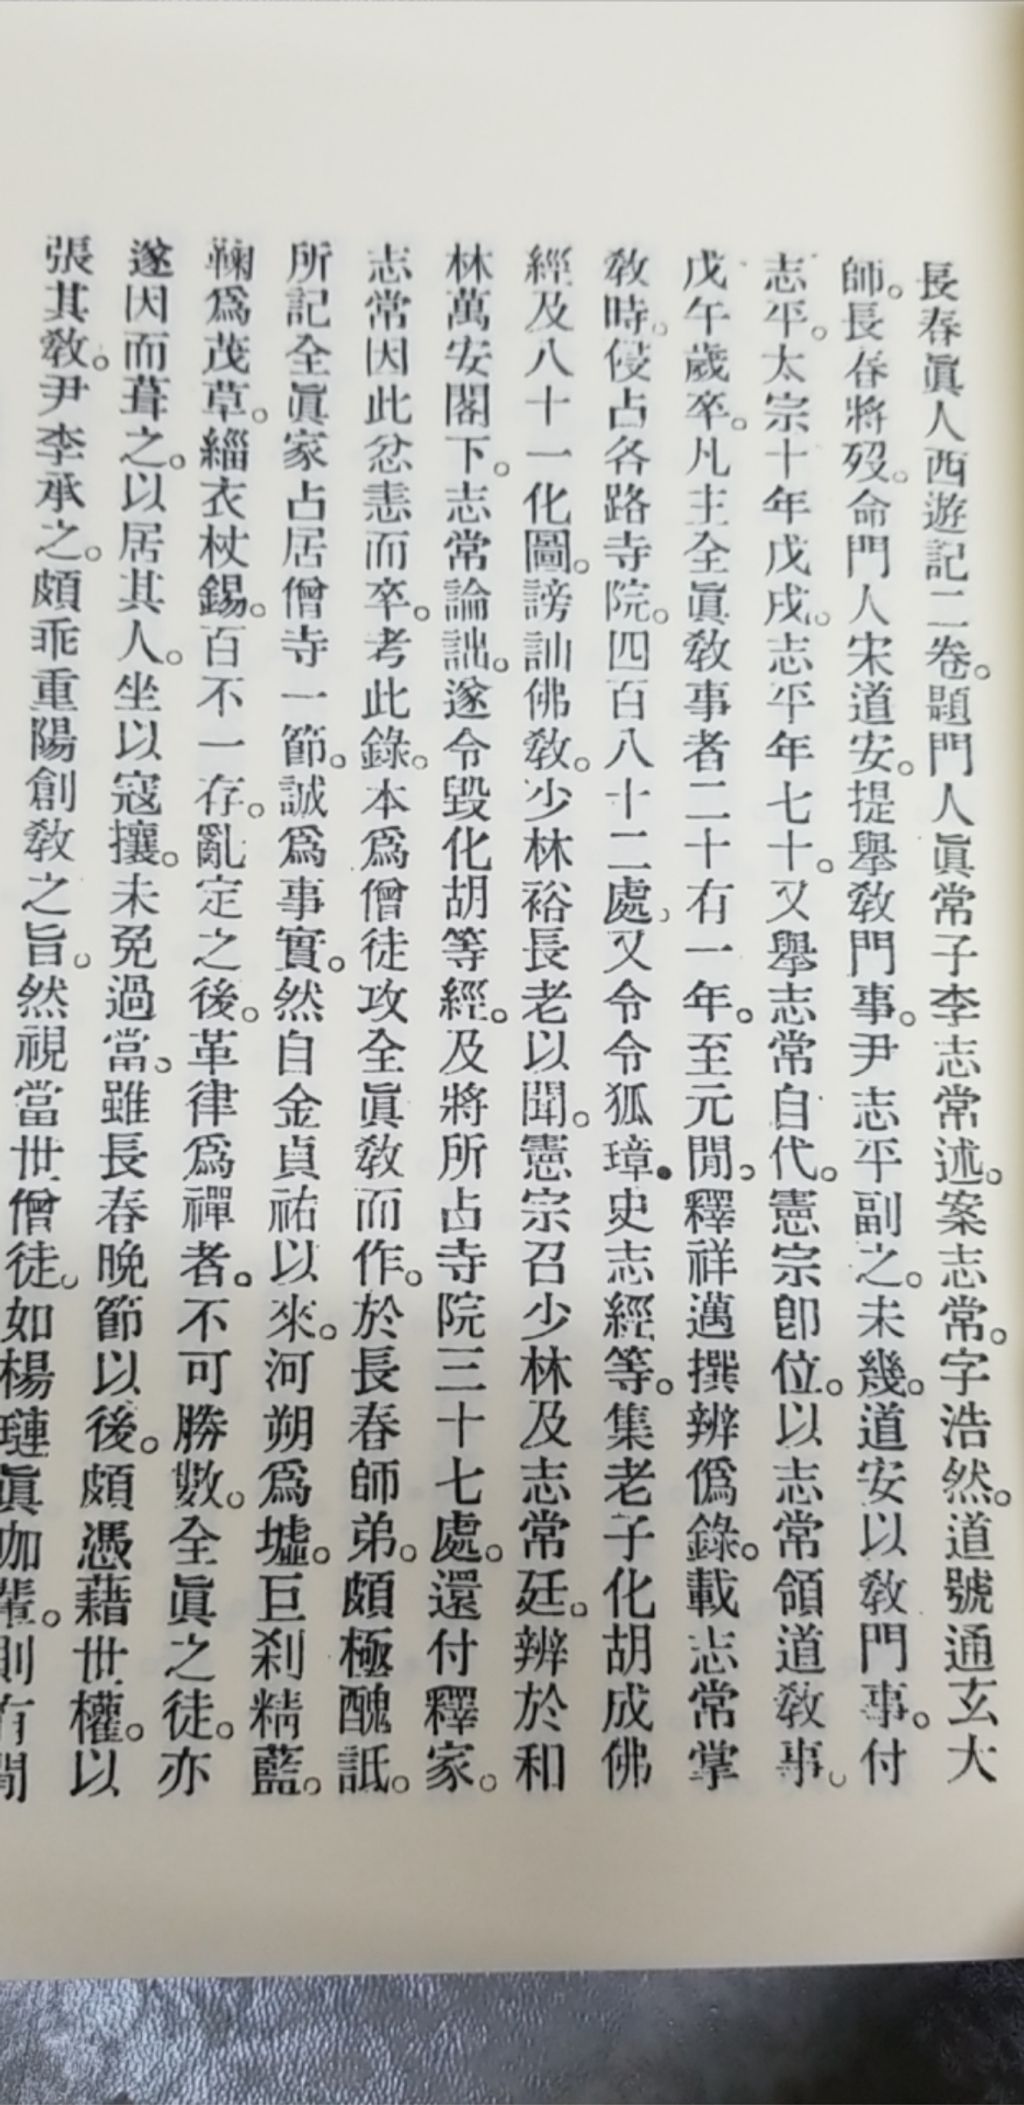 長春眞人西遊記二卷。題門人眞常子李志常述。案志常。字浩然。道號通玄大
師。長春將歿。命門人宋道安。提舉敎門事。尹志平副之。未幾。道安以敎門事。付
志平。太宗十年戊戌。志平年七十。又舉志常自代。憲宗卽位。以志常領道敎事。
戊午歲卒。凡主全眞敎事者二十有一年。至元閒。釋祥邁撰辨僞錄。載志常掌
敎時。侵占各路寺院。四百八十二處。又令令狐璋。史志經等。集老子化胡成佛
經及八十一化圖。謗訕佛敎。少林裕長老以聞。憲宗召少林及志常廷。辨於和
林萬安閣下。志常論詘。遂令毀化胡等經。及將所占寺院三十七處。還付釋家。
志常因此忿恚而卒。考此錄。本爲僧徒攻全眞敎而作。於長春師弟。頗極醜詆。
所記全眞家占居僧寺一節。誠爲事實。然自金貞祐以來。河朔爲墟。巨刹精藍。
鞠爲茂草。緇衣杖錫。百不一存。亂定之後。革律爲禪者。不可勝數。全眞之徒。亦
遂因而葺之。以居其人。坐以寇攘。未免過當。雖長春晚節以後。頗憑藉世權。以
張其敎。尹李承之。頗乖重陽創敎之旨。然視當世僧徒。如楊璉眞伽輩。則有閒